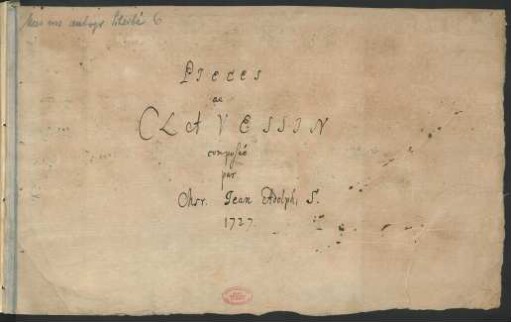 Pieces
de
CLAVESSIN
composée
par
Chr. Jean Adolph. S.
1727